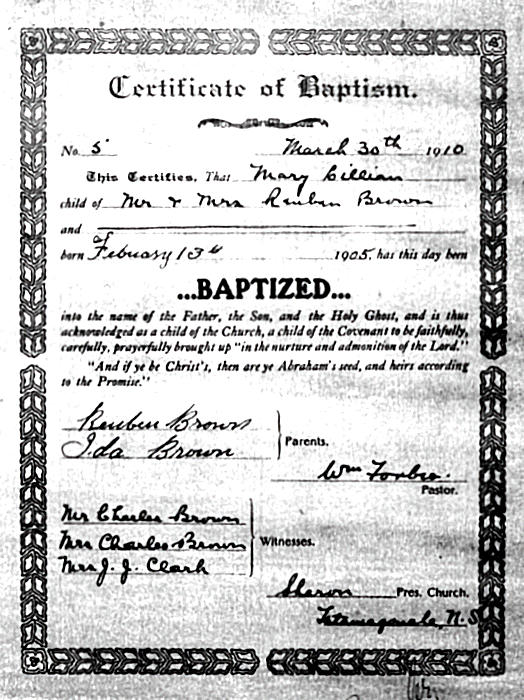 Certificate of Baptism.
No. 5 March 30th 1910
This Certifies, That Mary Lillian
child of Mr & Mrs Reuben Brown
and
born Febuary 13th 1905, has this day been
...BAPTIZED...
into the name of the Father, the Son, and the Holy Ghost, and is thus
acknowledged as a child of the Church, a child of the Covenant to be faithfully,
carefully, prayerfully brought up "in the nurture and admonition of the Lord."
"And if ye be Christ's, then are ye Abraham's seed, and heirs according
to the Promise."
Reuben Brown
Ida Brown
Parents.
Wm Forbes.
Pastor.
Mr Charles Brown
Mrs Charles Brown
Mrs J. J. Clark
Witnesses.
Sharon Pres. Church.
Tatamagouche N.S